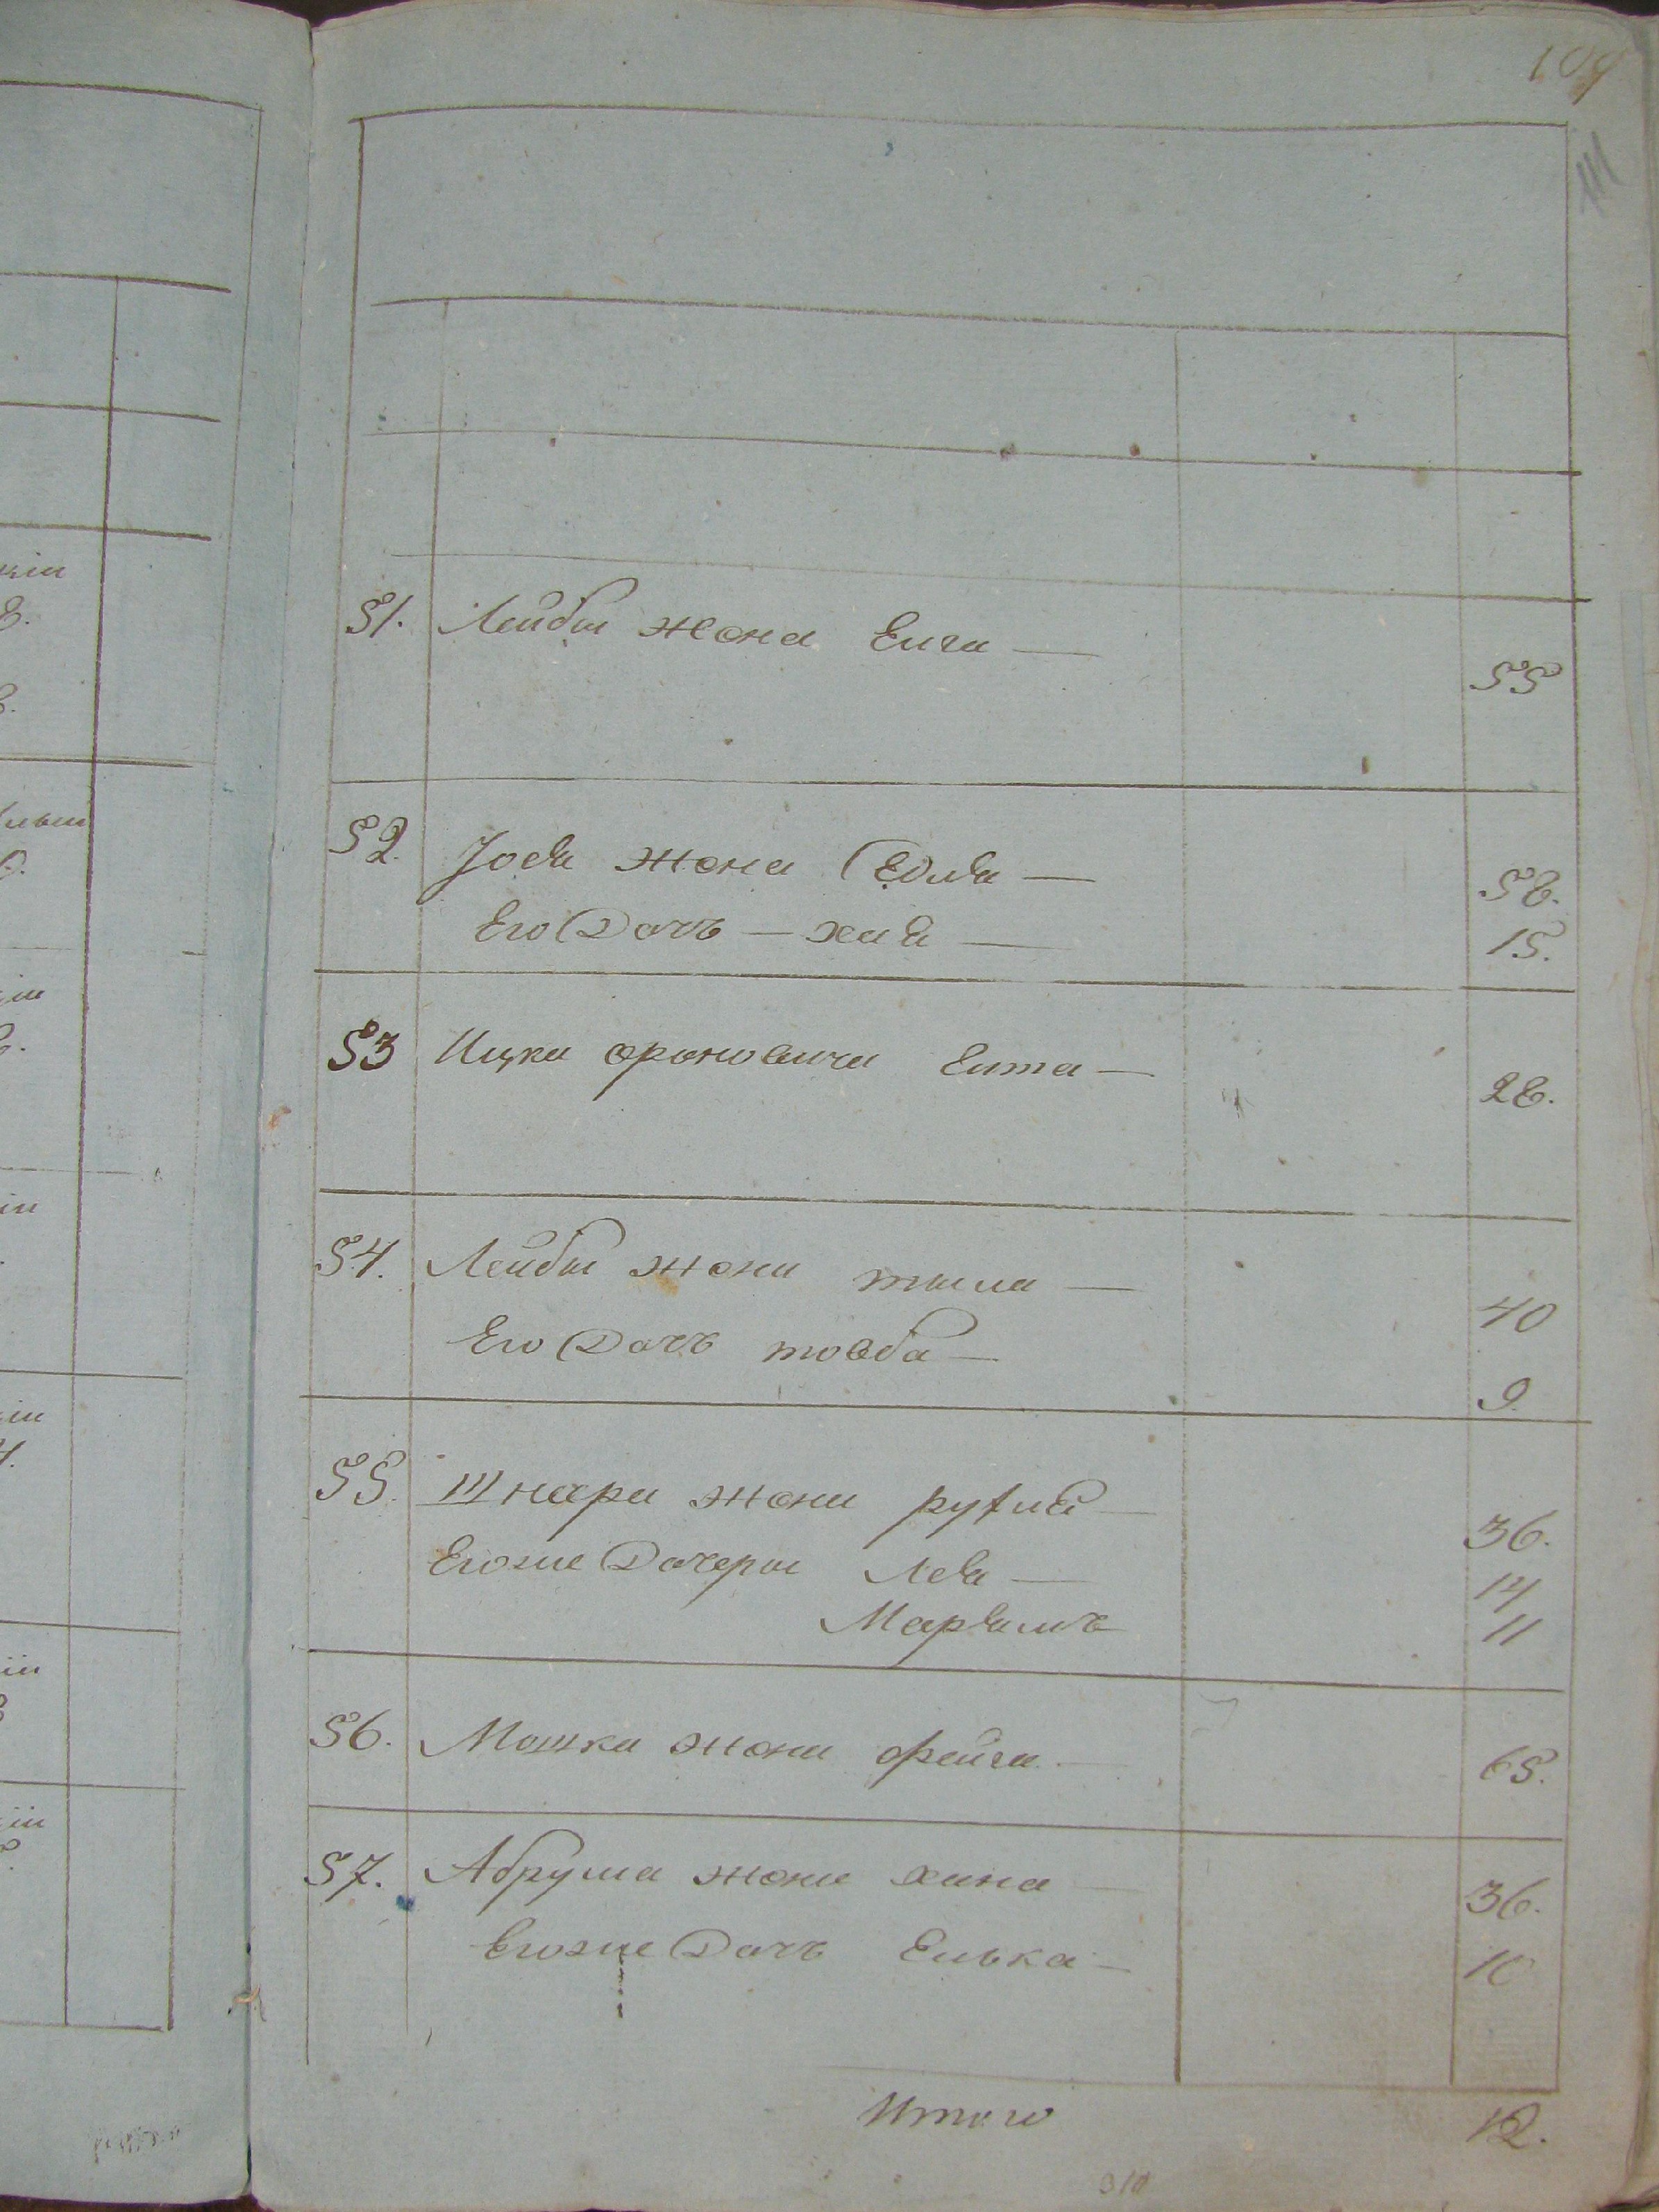 109
111
51. Лейбы жона Енга — 55
52. Іося жона Едля — 58.
Его Дочъ — хая — 15.
53 Ицки ороновича Ента — 28.
54. Лейбы жона тыла — 40
Его Дочъ товба — 9.
55. Шнара жона руѳля — 36.
Егоже Дочеры Лея — 14
Марямъ 11
56. Мошка жона фейга — 65.
57. Абрума жона хана — 36.
Егоже Дочъ Енька — 10
Итого 12.
310